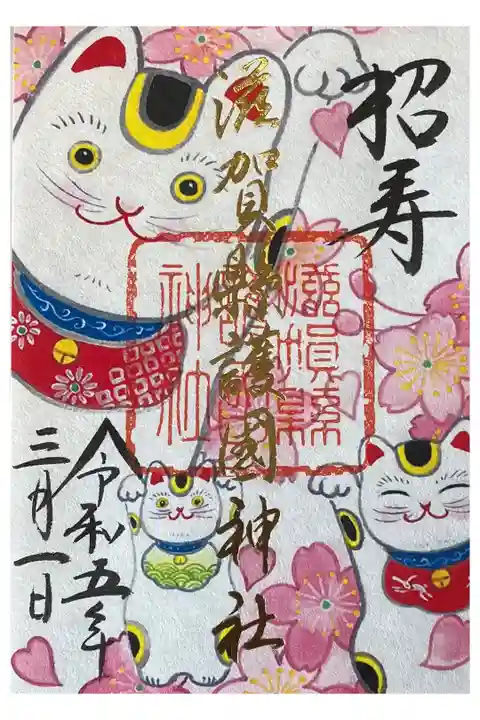 招寿
滋賀縣護國神社
令和五年
三月一日